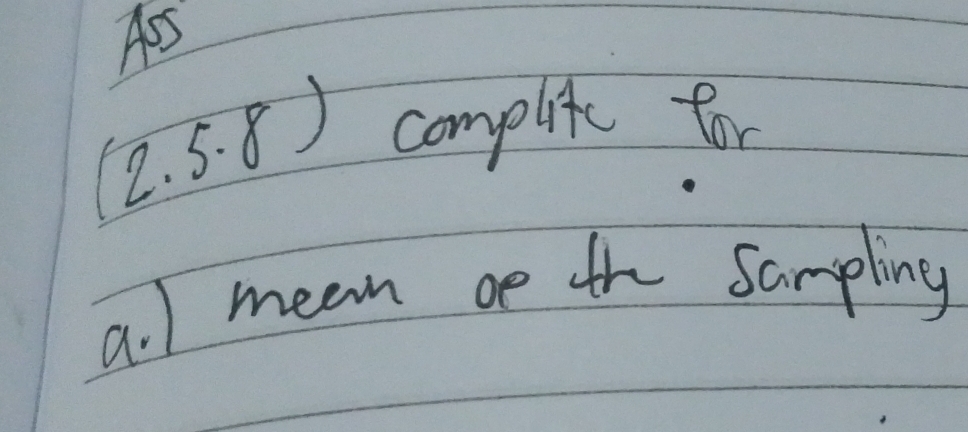 Ass
(2.5.8) complite for
a.) meem of th Sampling